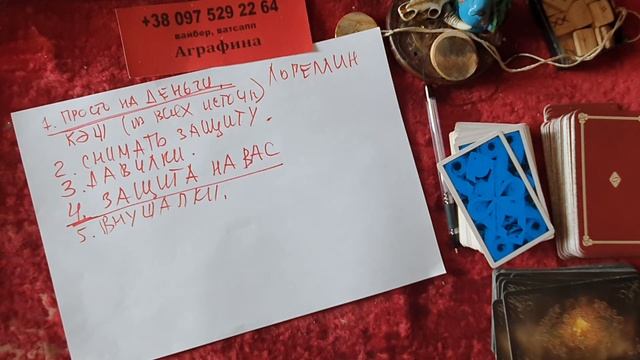 +38 097 529 22 64
вайбер, ватсапп
Аграфина
ЛОРЕМИН
1. ПРОСТЬ НА ДЕНЬГИ.
КЭШ (ИЗ ВСЕХ ИСТОЧ.)
2. СНИМАТЬ ЗАЩИТУ.
3. ДАВИЛКИ.
4. ЗАЩИТА НА ВАС
5. ВНУШАЛКИ.